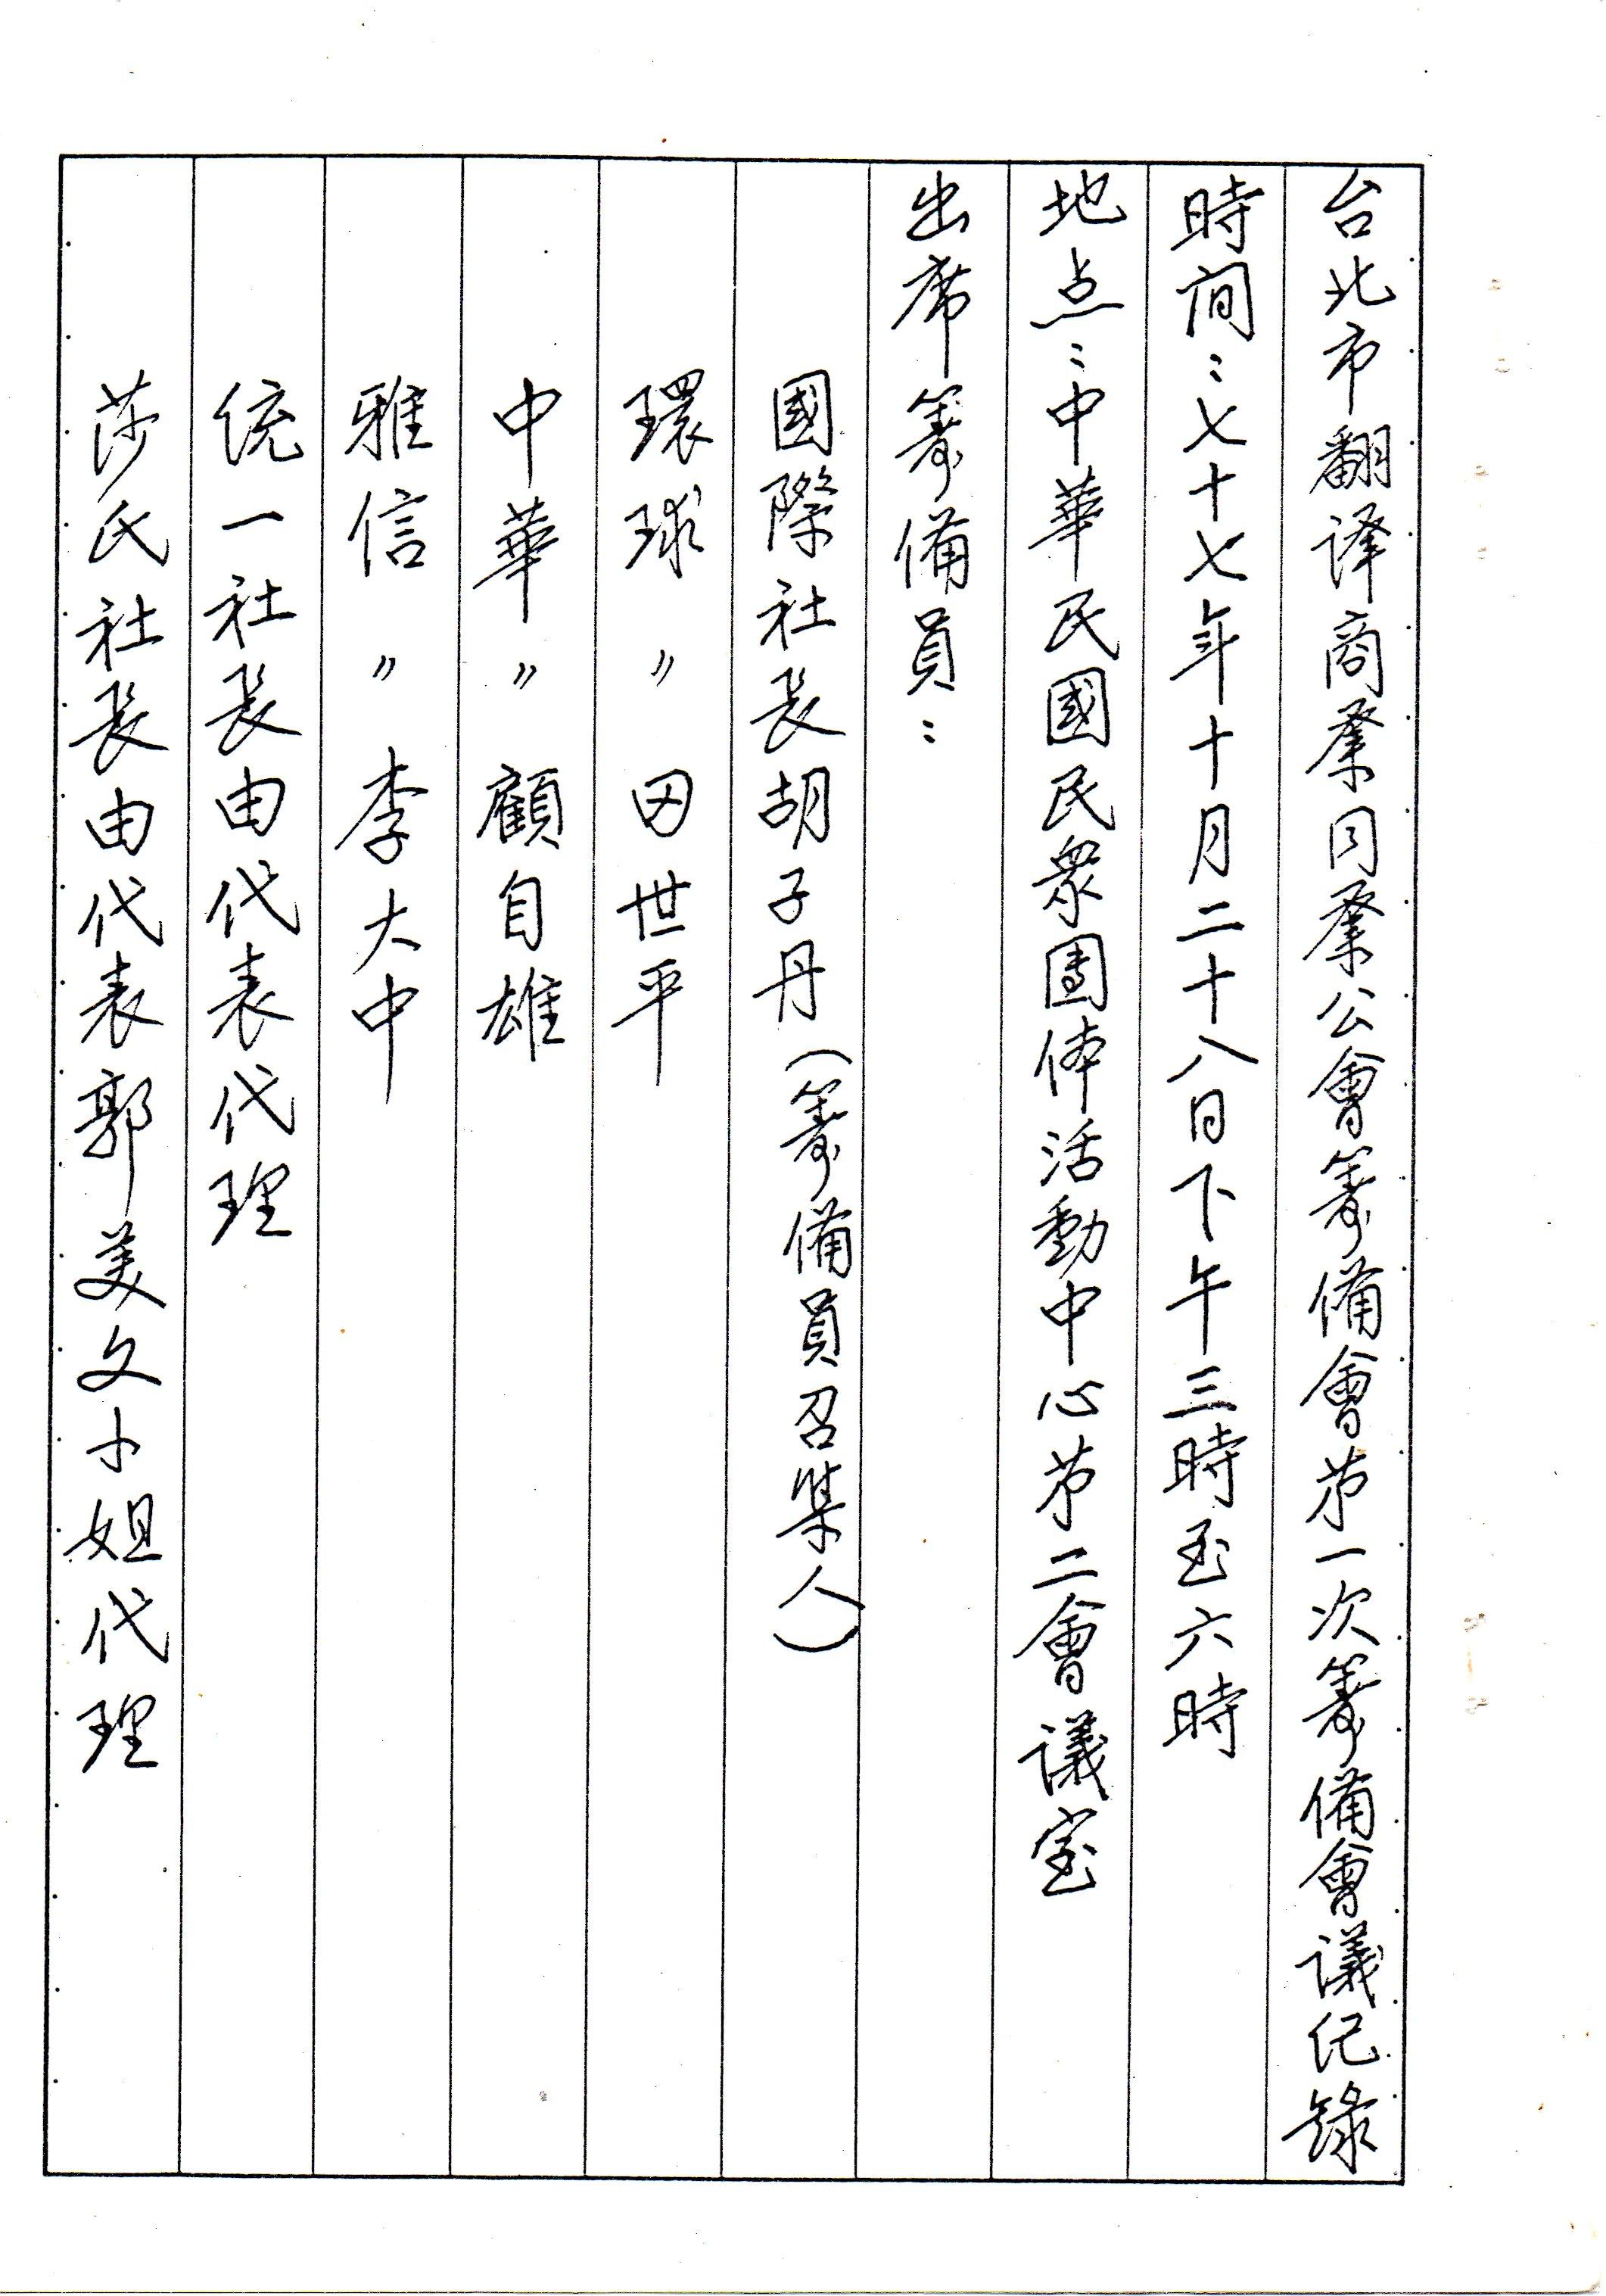 台北市翻译商業同業公會籌備會第一次籌備會議纪錄
時间：七十七年十月二十八日下午三時至六時
地点：中華民國民眾團体活動中心第二會議室
出席籌備員：
國際社長胡子丹（籌備員召集人）
環球〃田世平
中華〃顧自雄
雅信〃李大中
统一社長由代表代理
莎氏社長由代表郭美文小姐代理